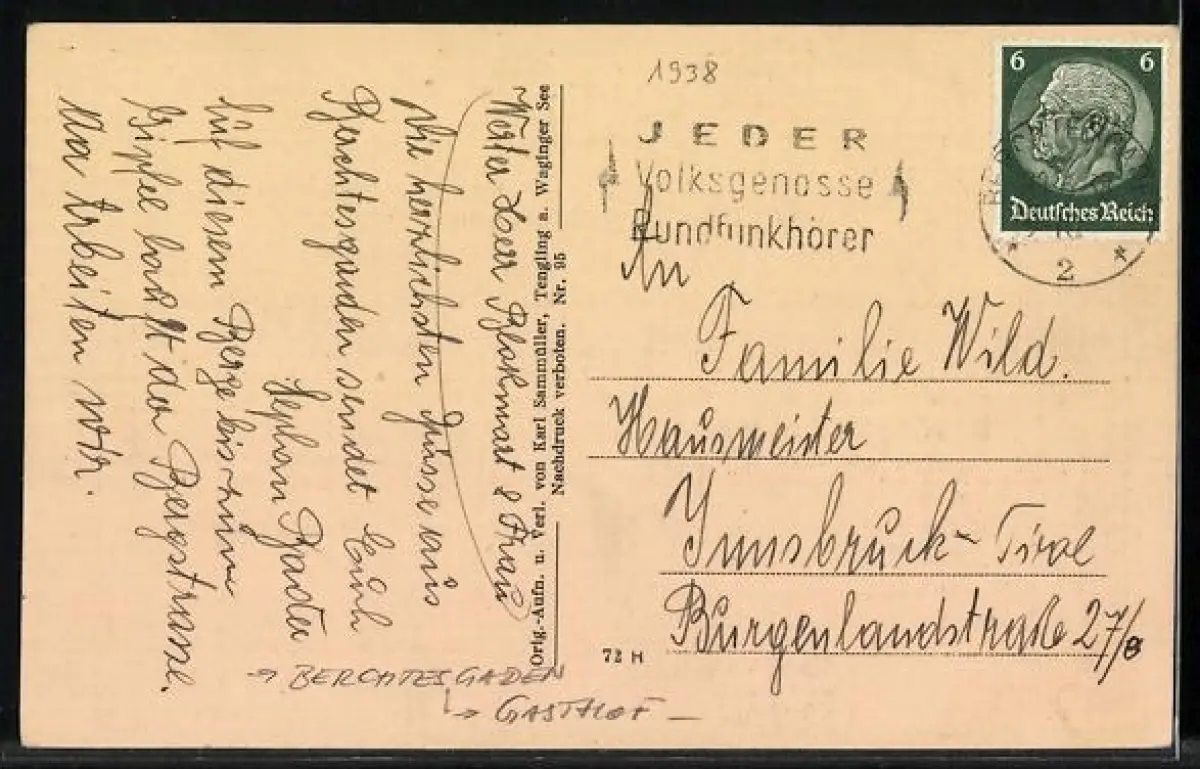 Werter Herr Blokmart & Frau
Die herzlichsten Grüsse aus
Berchtesgaden sendet Euch
Stephan Bader
Auf diesem Berge bis zum
Gipfel hoch ist der Bergstrasse.
Da Arbeiten wir.
Orig.-Aufn. u. Verl. von Karl Sammüller, Tengling a. Waginger See
Nachdruck verboten. Nr. 95
1938
JEDER
Volksgenosse
Rundfunkhörer
6 6
Deutsches Reich
2
An
Familie Wild.
Hausmeister
Innsbruck - Tirol
Burgenlandstraße 27/8
72 H
→ BERCHTESGADEN
→ GASTHOF –